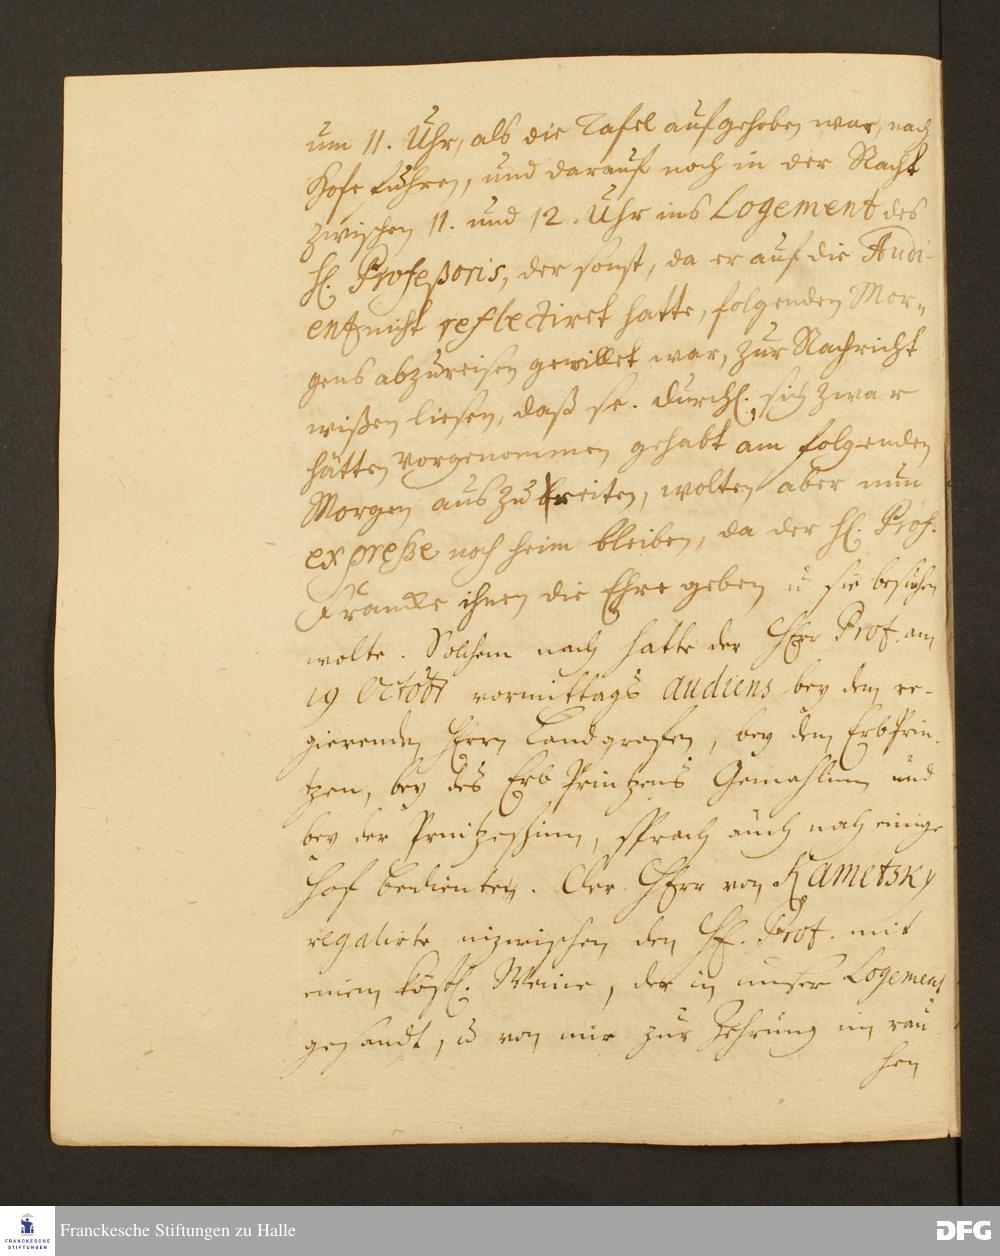 um 11. Uhr, als die Tafel aufgehoben war, nach
Hofe fuhren, und darauf noch in der Nacht
zwischen 11. und 12. Uhr ins Logement des
H. Profeßoris, der sonst, da er auf die Audi-
entz nicht reflectiret hatte, folgenden Mor-
gens abzureisen gewillet war, zur Nachricht
wißen liesen, daß se. Durchl. sich zwar
hätten vorgenommen gehabt am folgenden
Morgen auszureiten, wolten aber nun
expreße noch heim bleiben, da der H. Prof.
Francke ihnen die Ehre geben u. sie besuchen
wolte. Solchem nach hatte der Herr Prof. am
19 Octobr vormittags audiens bey dem re-
gierenden Herrn Landgrafen, bey dem ErbPrin-
tzen, bey des Erb Printzens Gemahlinn und
bey der Printzeßinn, sprach auch noch einige
Hof bedienten. Der Herr von Kametsky
regalirte inzwischen den H. Prof. mit
einem köstl. Weine, der in unser Logement
gesandt, u. von mir zur Zehrung im rau-
hen
Franckesche Stiftungen zu Halle
FRANCKESCHE
STIFTUNGEN
DFG